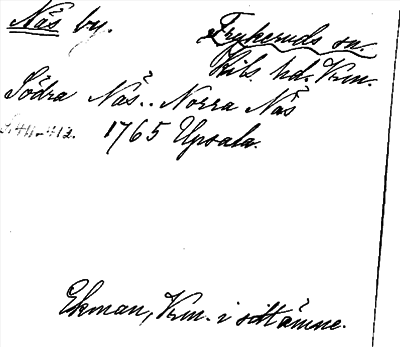 Näs by.
Frykeruds sn.
Kils hd. Vrm.
Södra Näs.. Norra Näs
s. 411-412. 1765 Upsala.
Ekman, Vrm. i sitt ämne.